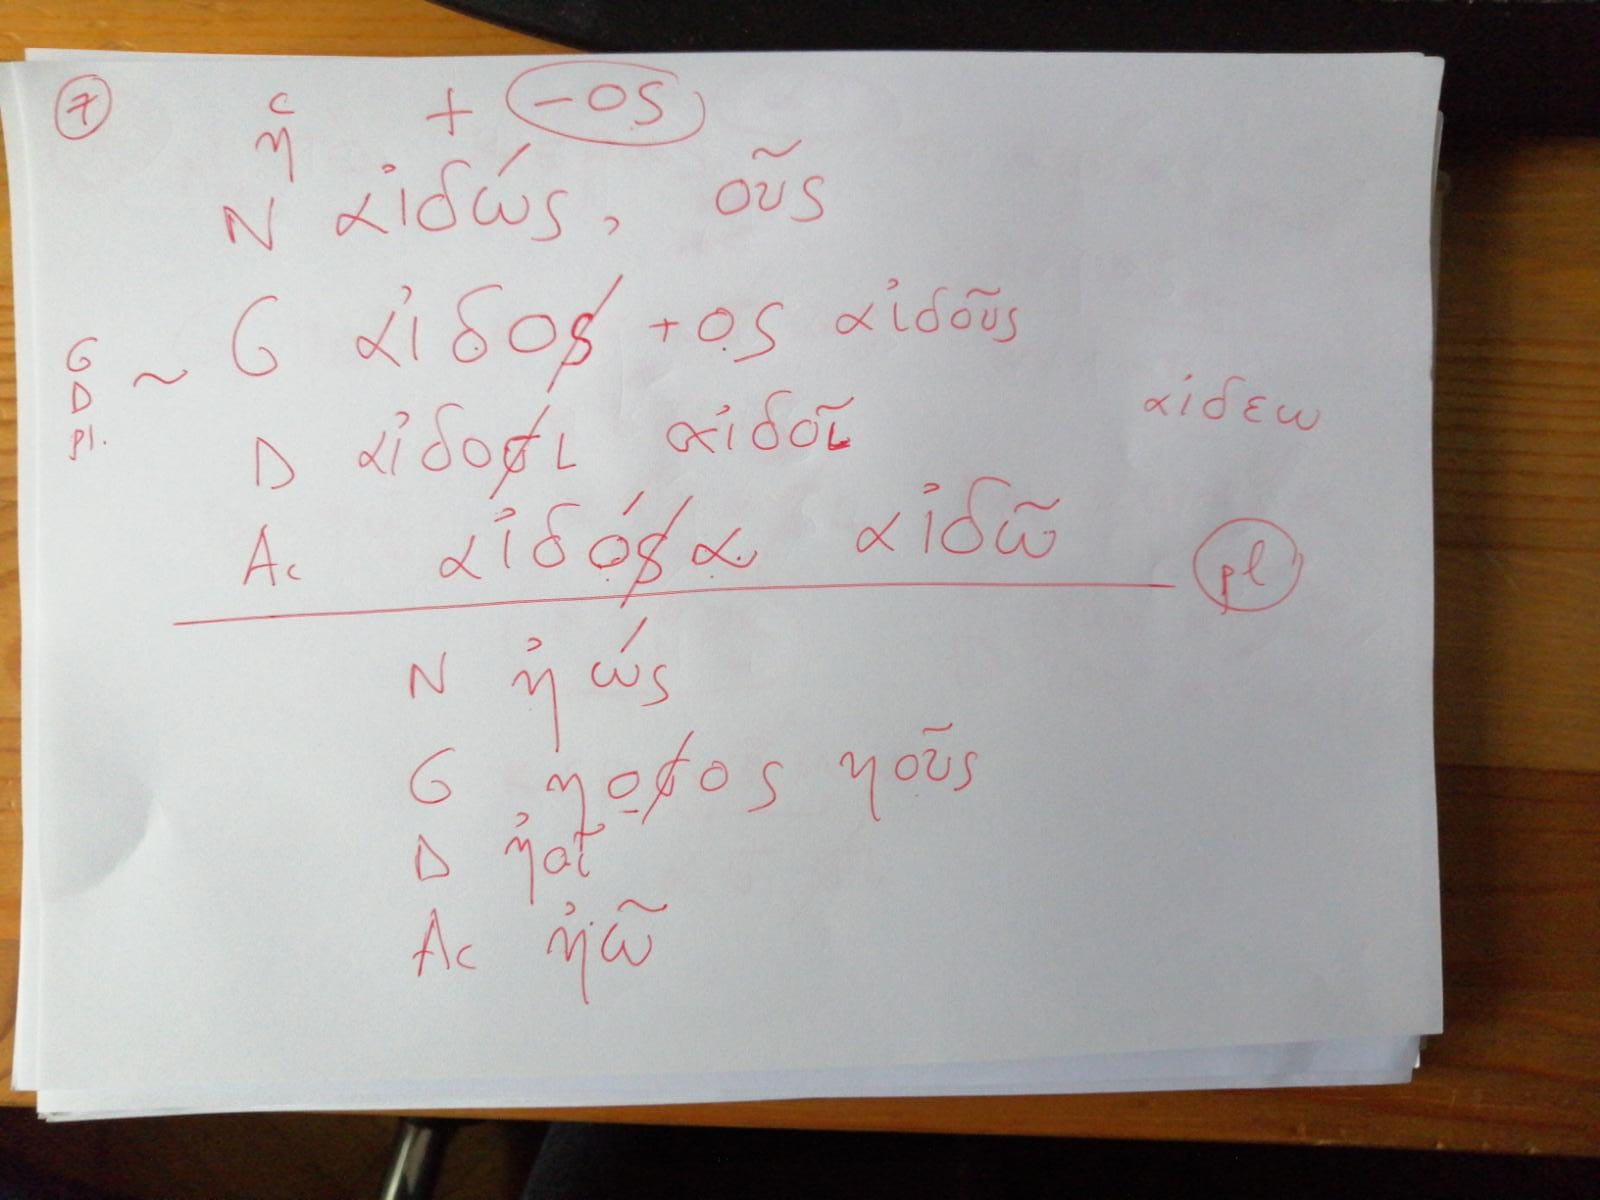 7 ἡ + -ος
N αἰδώς, οῦς
G αἰδος + ος αἰδοῦς
G
D ~
pl.
αἰδεω
D αἰδοσι αἰδοῖ
Ac αἰδόσα αἰδῶ
pl
N ἠώς
G ηοσος ηοῦς
D ἠοῖ
Ac ἠῶ